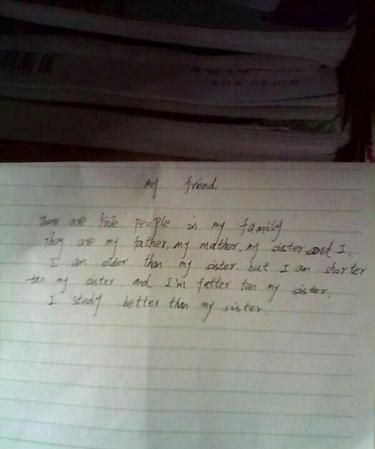 my friend
There are five people in my family
They are my father, my mother, my sister and I.
I am older than my sister. but I am shorter
tan my sister. and I'm fatter tan my sister.
I study better than my sister.